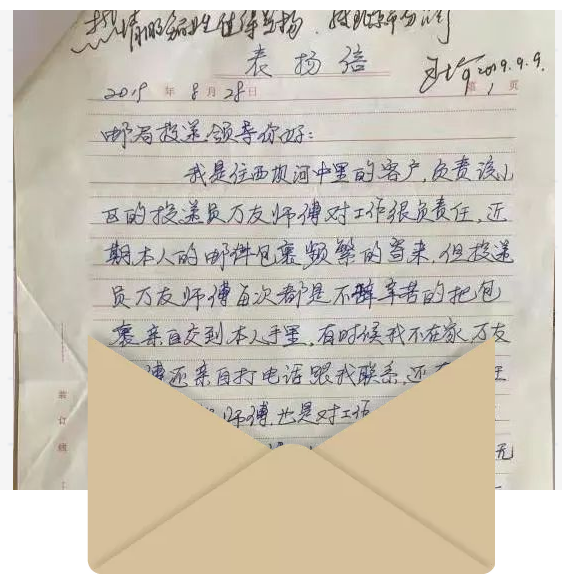 热情的好女性值得表扬,
表扬信
2019.9.9.
2019年8月28日
第1页
邮局投递领导你好:
我是住西坝河中里的客户,负责该小
区的投递员万友师傅对工作很负责任,近
期本人的邮件包裹频繁的寄来,但投递
员万友师傅每次都是不辞辛苦的把包
裹亲自交到本人手里,有时候我不在家,万友
傅还亲自打电话跟我联系,还
师傅,也是对工作
无
装订线